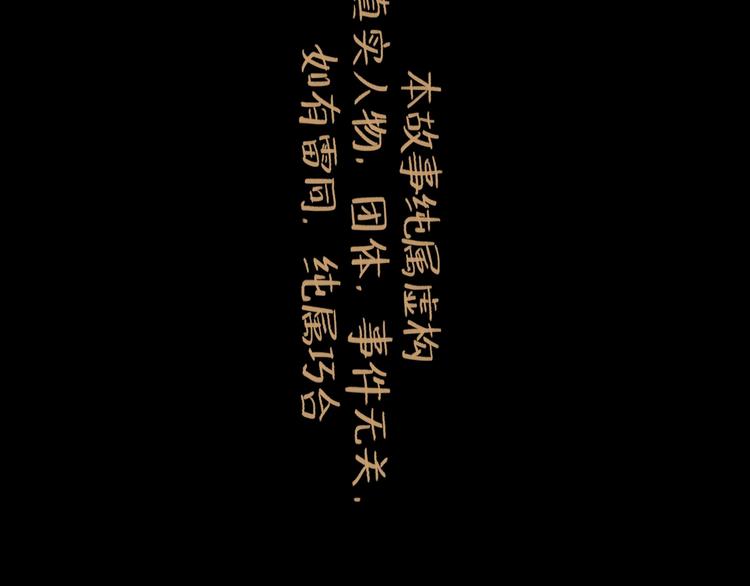 本故事纯属虚构
真实人物，团体，事件无关，
如有雷同，纯属巧合